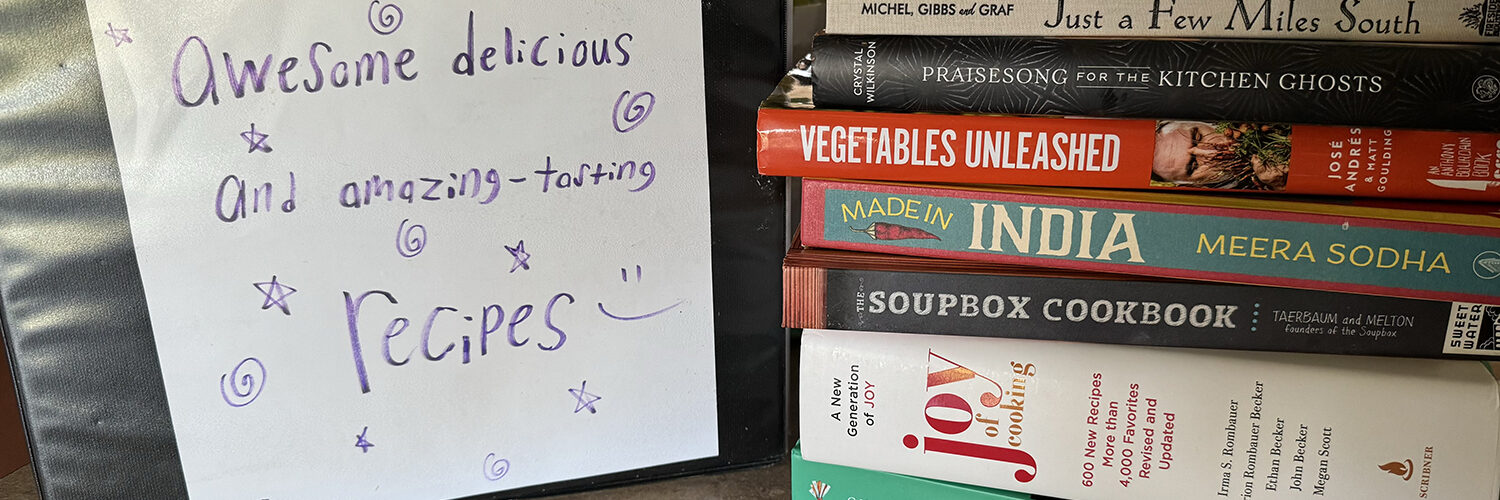 awesome delicious
and amazing-tasting
recipes
MICHEL, GIBBS and GRAF
Just a Few Miles South
CRYSTAL
WILKINSON
PRAISESONG FOR THE KITCHEN GHOSTS
VEGETABLES UNLEASHED
JOSÉ
ANDRÉS
& MATT
GOULDING
AN
ANTHONY
BOURDAIN
BOOK
MADE IN
INDIA
MEERA SODHA
THE SOUPBOX COOKBOOK
TAERBAUM and MELTON
founders of the Soupbox
SWEET
WATER
A New
Generation
of JOY
joy
of
cooking
600 New Recipes
More than
4,000 Favorites
Revised and
Updated
Irma S. Rombauer
ion Rombauer Becker
Ethan Becker
John Becker
Megan Scott
SCRIBNER